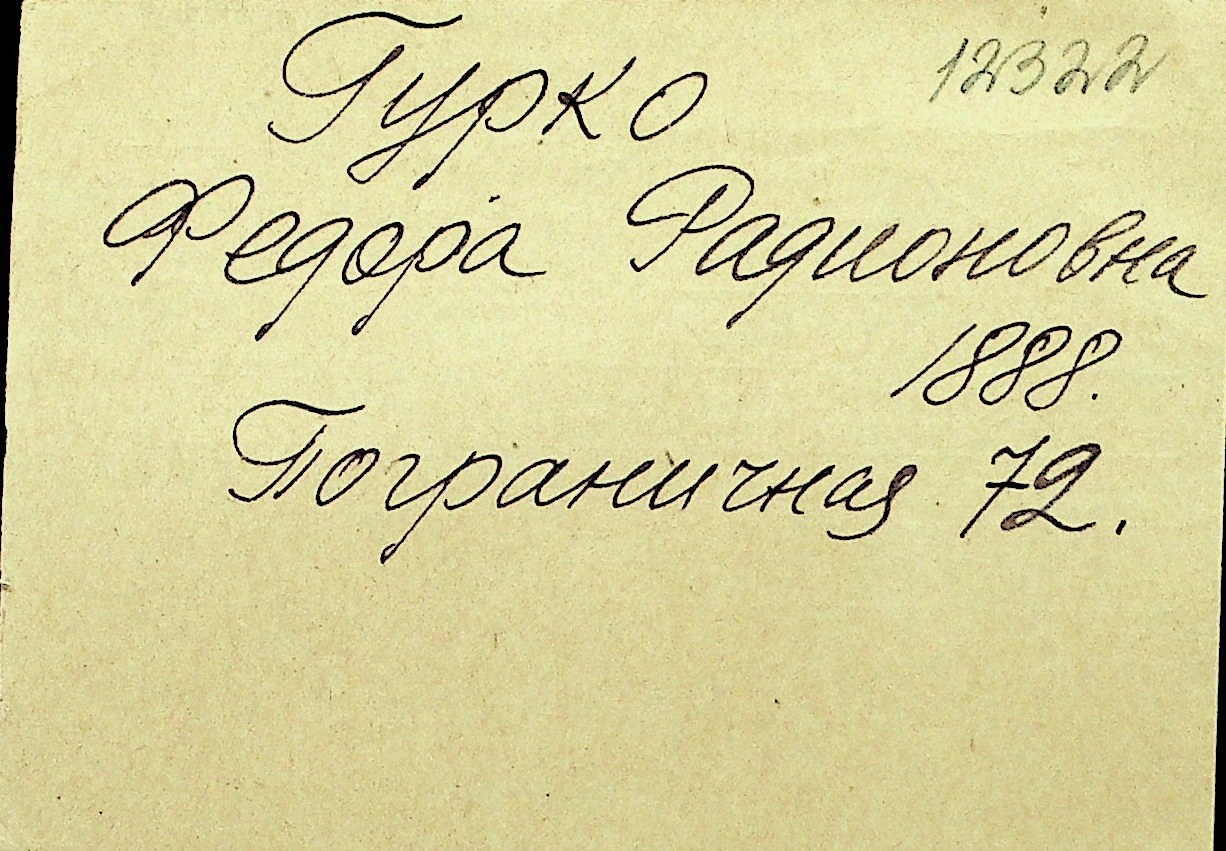 12322
Гурко
Федора Радионовна
1888.
Пограничная 72.